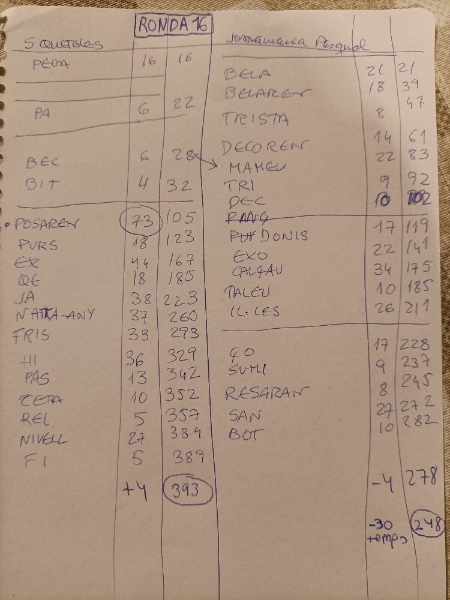 RONDA 16
S Quetales
PEDA 16 16
PA 6 22
BEC 6 28
BIT 4 32
POSAREN 73 105
PURS 18 123
EX 44 167
QE 18 185
JA 38 223
NATTA-ANY 37 260
FRIS 33 293
HI 36 329
PAS 13 342
ZETA 10 352
REL 5 357
NIVELL 27 384
FI 5 389
+4 393
Pasqual
BELA 21 21
BELAREN 18 39
TRISTA 8 47
DECOREN 14 61
MAMEU 22 83
TRI 9 92
DEC 10 102
DONIS 17 119
EXO 22 141
CALÇAU 34 175
TALEU 10 185
IL·LES 26 211
ÇO 17 228
SUMI 9 237
RESARAN 8 245
SAN 27 272
BOT 10 282
-4 278
-30 248
temps